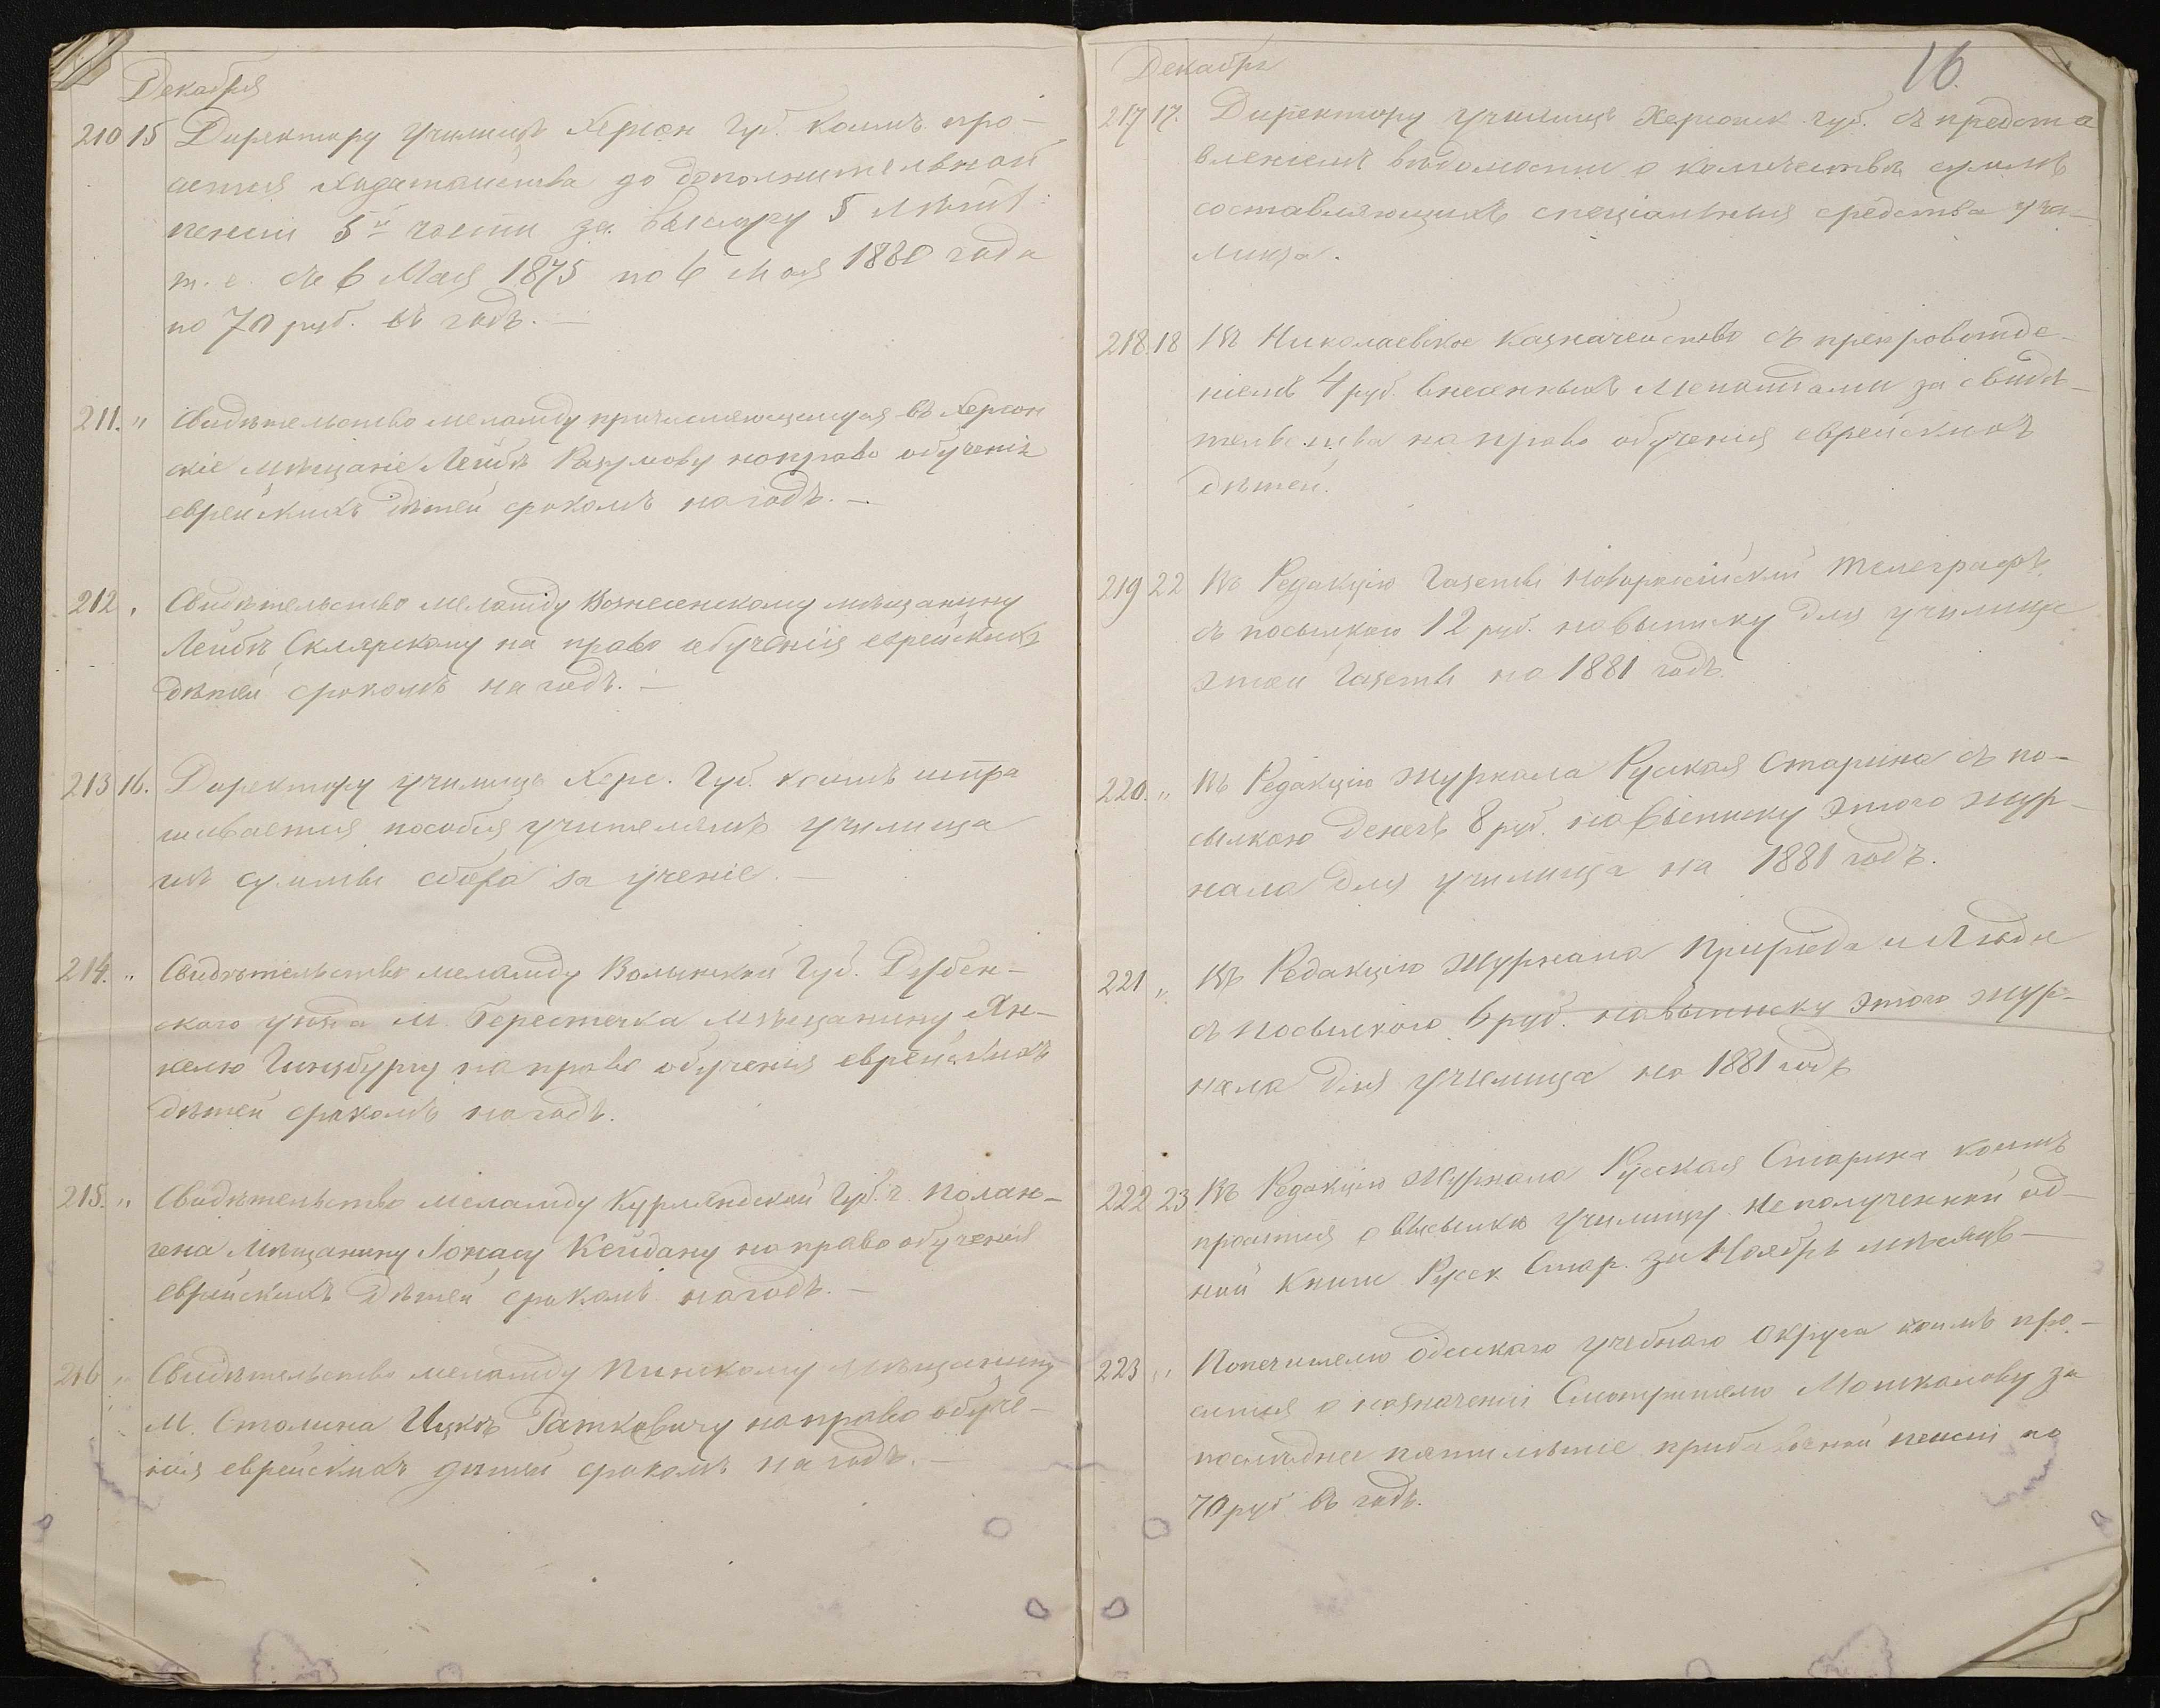 Декабря
210 15 Директору училищъ Херсон Губ. коимъ про-
сится ходатайства до дополнительной
пенсіи 5й части за выслугу 5 лѣтъ
т. е. съ 6 Мая 1875 по 6 Мая 1880 года
по 70 руб. въ годъ. —
211. " Свидѣтельство меламду причисляющемуся въ Херсон
скіе мѣщане Лейбѣ Разумову на право обученія
еврейскихъ дѣтей срокомъ на годъ. —
212 " Свидѣтельство меламду Вознесенскому мѣщанину
Лейбѣ Склярскому на право обученія еврейскихъ
дѣтей срокомъ на годъ. —
213 16. Директору училищъ Херс. Губ. коимъ испра
шивается пособія учителямъ училища
изъ суммы сбора за ученіе. —
214. " Свидѣтельство меламду Волынской Губ. Дубен-
скаго уѣзда М. Берестечка мѣщанину Ян-
келю Гинцбургу на право обученія еврейскихъ
дѣтей срокомъ на годъ.
215. " Свидѣтельство меламду Курляндской Губ. г. Полан-
гена мѣщанину Іонасу Кейдану на право обученія
еврейскихъ дѣтей срокомъ на годъ. —
216 " Свидѣтельство меламду Пинскому мѣщанину
М. Столина Ицкѣ Раткевичу на право обуче-
нія еврейскихъ дѣтей срокомъ на годъ. —
16.
Декабрь
217 17. Директору училищъ Херсонск. Губ. съ предста
вленіемъ вѣдомости о количествѣ суммъ
составляющихъ спеціальныя средства учи-
лища.
218. 18 Въ Николаевское Казначейство съ препровожде-
ніемъ 4 руб. внесенныхъ Меламдами за свидѣ-
тельства на право обученія еврейскихъ
дѣтей.
219 22 Въ Редакцію Газеты Новороссійскій Телеграфъ
съ посылкою 12 руб. на выписку для училища
этой Газеты на 1881 годъ.
220. " Въ Редакцію журнала Русская Старина съ по-
сылкою денегъ 8 руб. на выписку этого жур-
нала для училища на 1881 годъ.
221 " Въ Редакцію Журнала Природа и Люди
съ посылкою 6 руб. на выписку этого жур-
нала для училища на 1881 годъ
222 23 Въ Редакцію Журнала Русская Старина коимъ
просится о высылкѣ училищу неполученной од-
ной книги Русск Стар. за Ноябрь мѣсяцъ —
223 " Попечителю Одесскаго учебнаго Округа коимъ про-
сится о назначеніи Смотрителю Мошкалову за
послѣднее пятилѣтіе прибавочной пенсіи по
70 руб въ годъ.